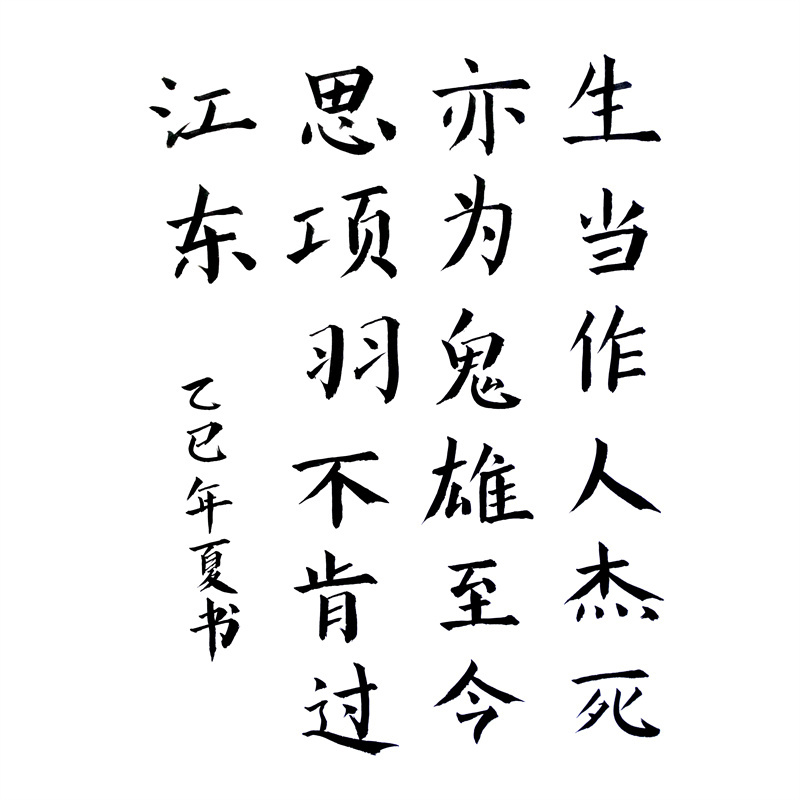 生当作人杰死
亦为鬼雄至今
思项羽不肯过
江东
乙巳年夏书